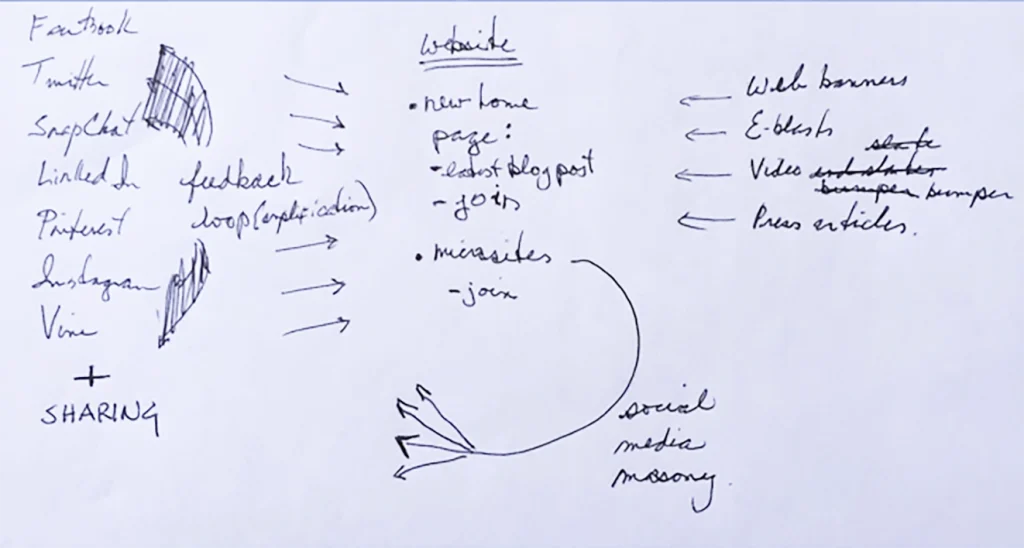 Facebook
Twitter
SnapChat
Linked In
Pinterest
Instagram
Vine
+
SHARING
feedback
loop (amplification)
website
• new home
page:
- latest blog post
- join
• microsites
- join
social
media
masonry.
Web banners
E-blasts
slate
Video end slates
bumper bumper
Press articles.